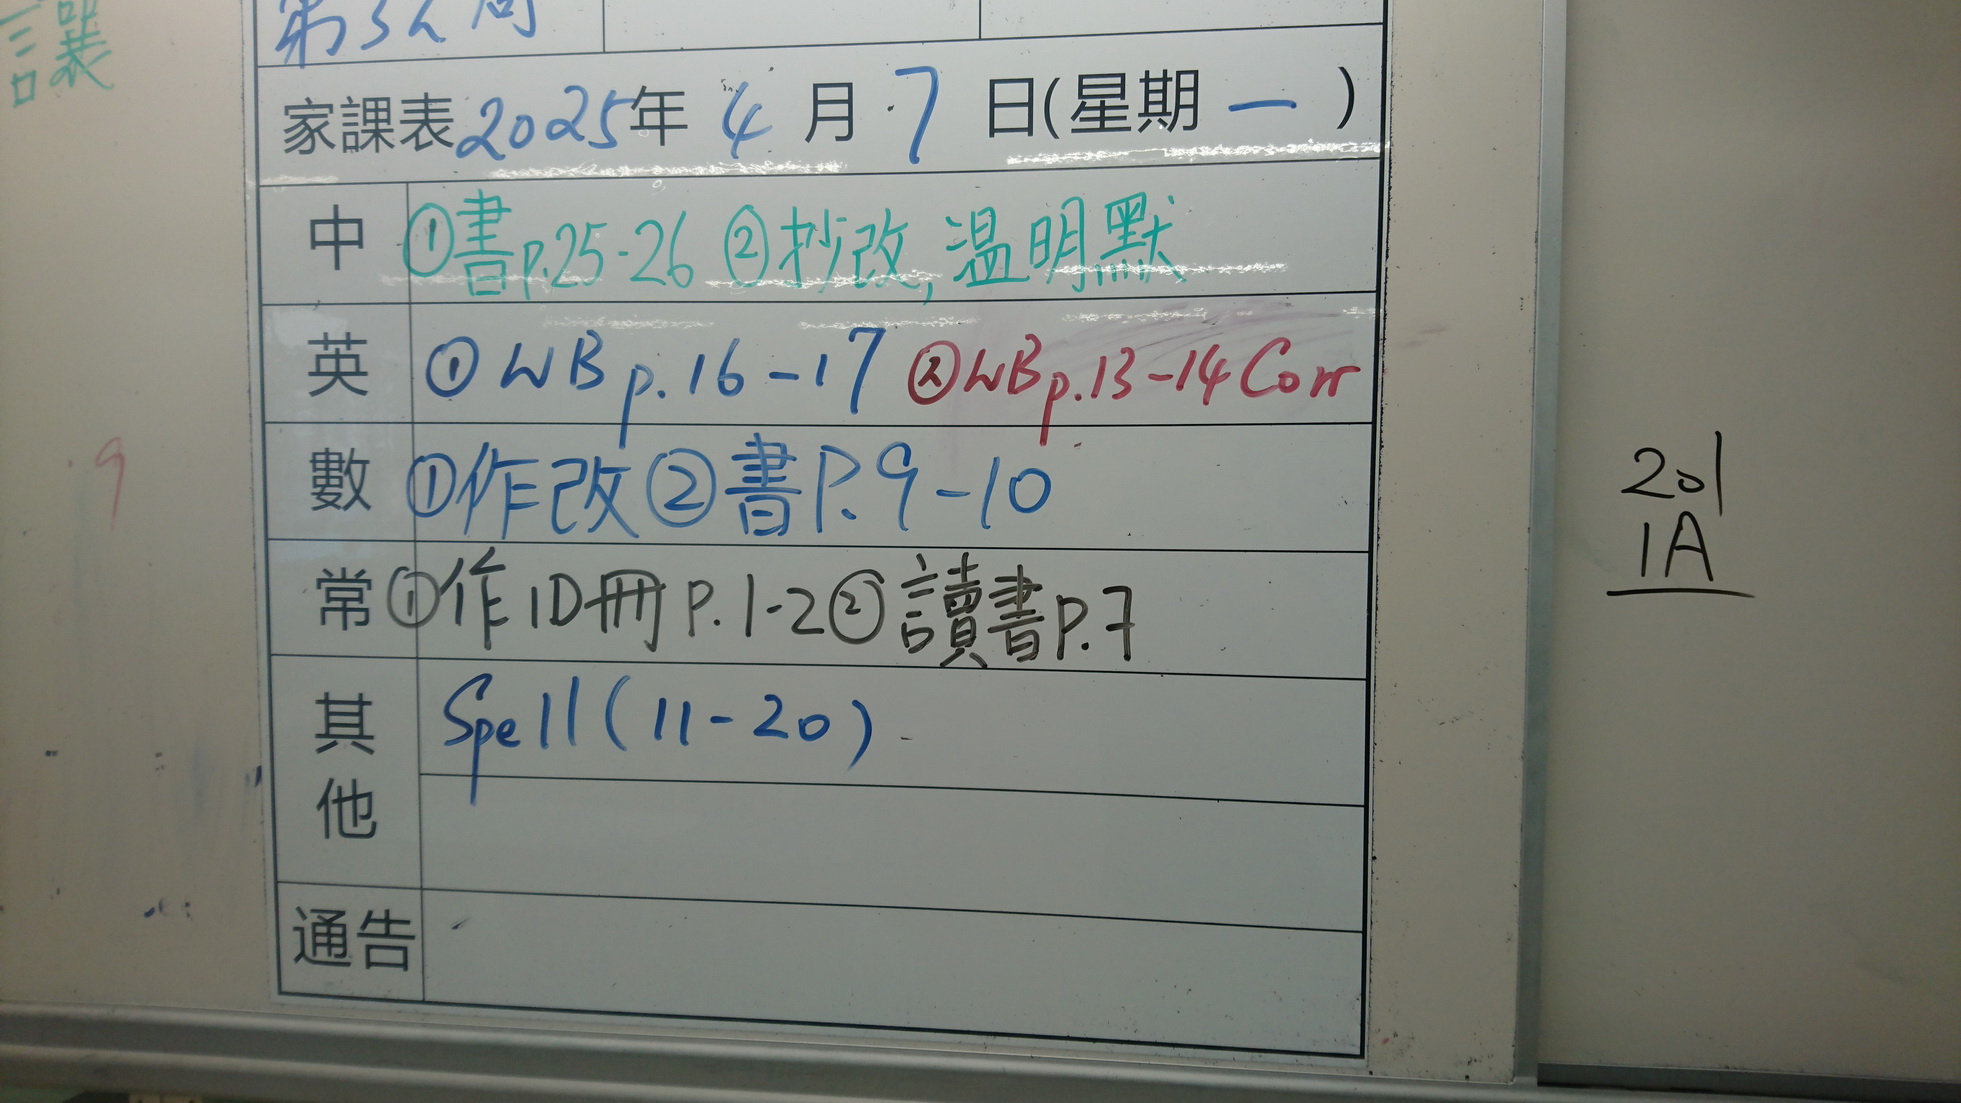 第32周
家課表2025年4月7日(星期一)
中 ①書p.25-26 ②抄改,温明默
英 ①WB p.16-17 ②WB p.13-14 Corr
數 ①作改②書P.9-10
常 ①作1D冊P.1-2②讀書P.7
其他 Spell(11-20)
通告
201
1A
9